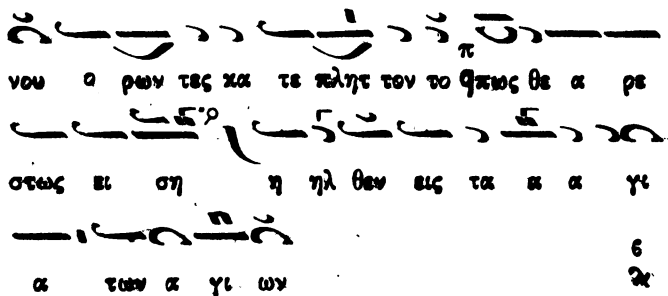 νου ο ρων τες κα τε πλητ τον το πως θε α ρε
στως ει ση η ηλ θεν εις τα α α γι
α των α γι ων